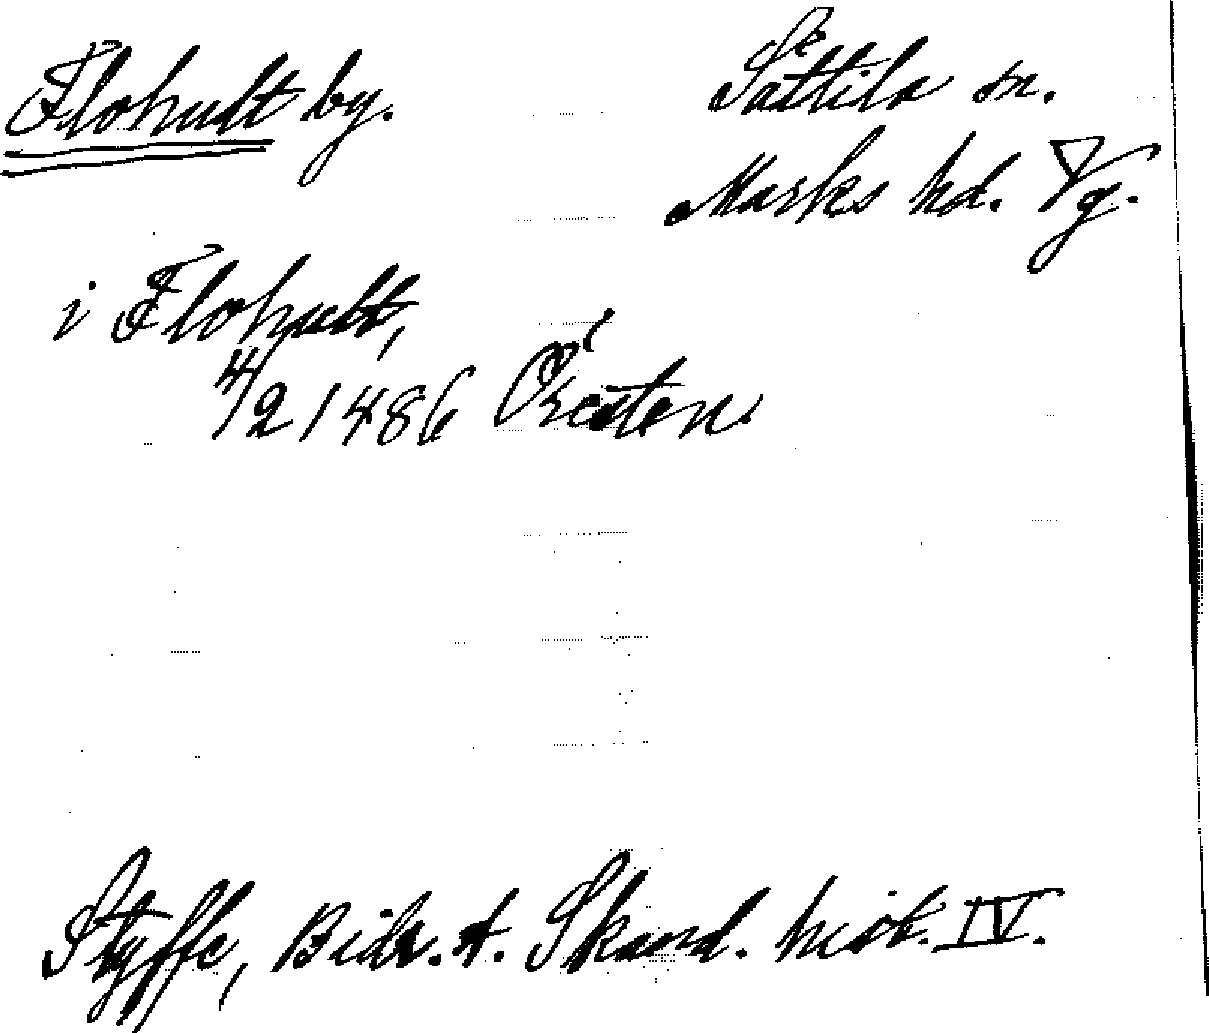 Flohult by.
Sätila sn.
Marks hd. Vg.
i Flohult,
4/2 1486 Öresten.
Styffe, Bidr. t. Skand. hist. IV.